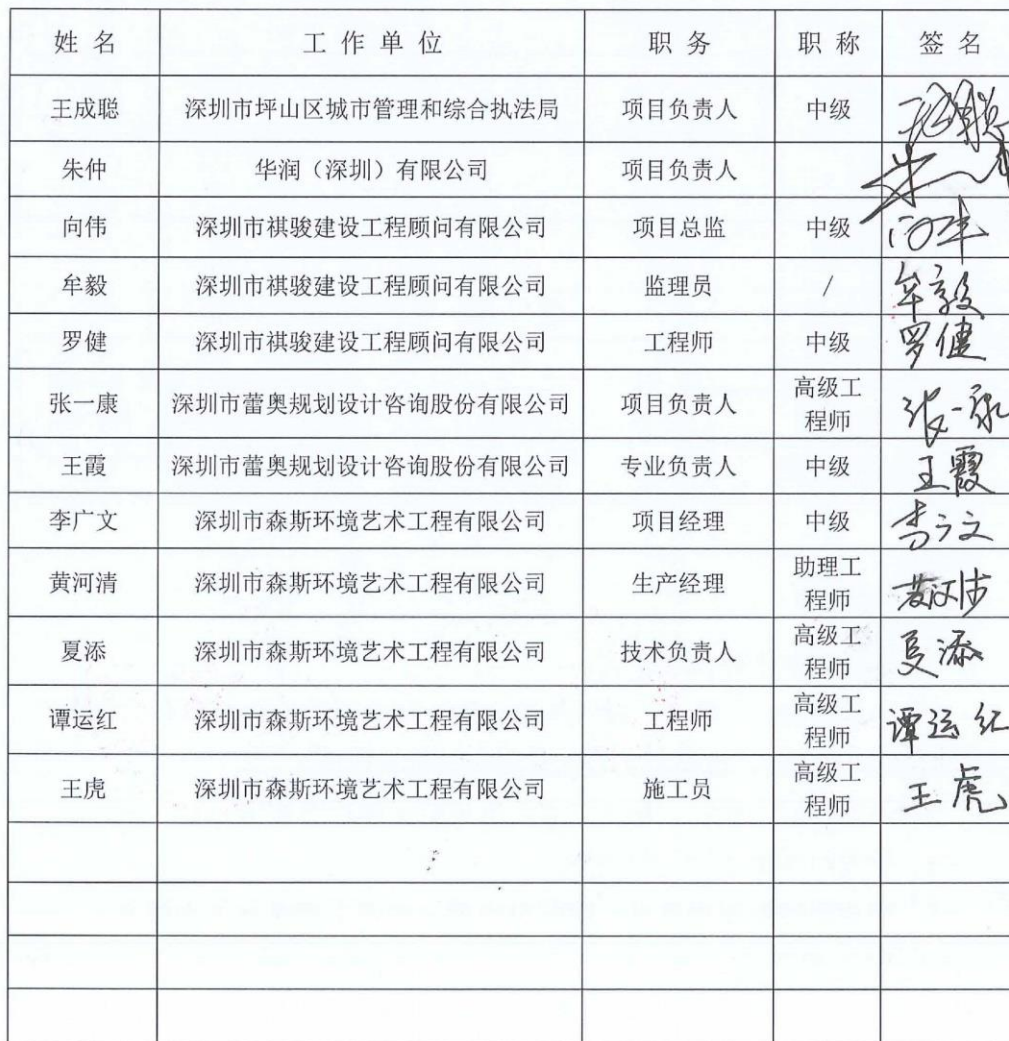 姓 名 工 作 单 位 职 务 职 称 签 名
王成聪 深圳市坪山区城市管理和综合执法局 项目负责人 中级
朱仲 华润（深圳）有限公司 项目负责人
向伟 深圳市祺骏建设工程顾问有限公司 项目总监 中级 向伟
牟毅 深圳市祺骏建设工程顾问有限公司 监理员 / 牟毅
罗健 深圳市祺骏建设工程顾问有限公司 工程师 中级 罗健
张一康 深圳市蕾奥规划设计咨询股份有限公司 项目负责人 高级工程师 张一康
王霞 深圳市蕾奥规划设计咨询股份有限公司 专业负责人 中级 王霞
李广文 深圳市森斯环境艺术工程有限公司 项目经理 中级 李广文
黄河清 深圳市森斯环境艺术工程有限公司 生产经理 助理工程师 黄河清
夏添 深圳市森斯环境艺术工程有限公司 技术负责人 高级工程师 夏添
谭运红 深圳市森斯环境艺术工程有限公司 工程师 高级工程师 谭运红
王虎 深圳市森斯环境艺术工程有限公司 施工员 高级工程师 王虎